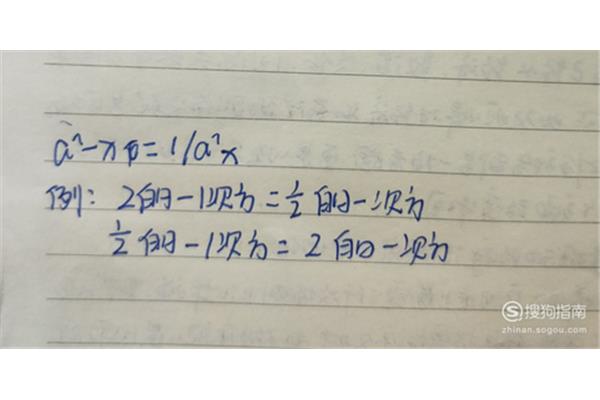 a^-x中=1/a^x
例:2的-1次方=½的一次方
½的-1次方=2的一次方
搜狗指南
zhinan.sogou.com